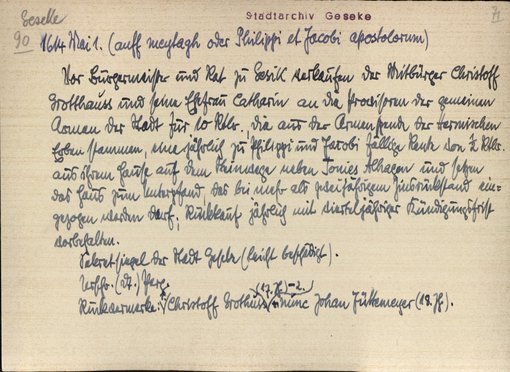 Geseke
Stadtarchiv Geseke
90 1614 Mai 1. (auff meytagh oder Philippi et Jacobi apostolorum)
Vor Bürgermeister und Rat zu Gesik verkaufen der Mitbürger Christoff
Grotthauss und seine Ehefrau Catharin an die Provisoren der gemeinen
Armen der Stadt für 10 Rtlr., die aus der Armenspende der
Erben stammen, eine jährlich zu Philippi und Jacobi fällige Rente von 1/2 Rtlr.
aus ihrem Hause auf dem Steinwege neben Tonies Alhagen und setzen
das Haus zum Unterpfand, das bei mehr als zweijährigem Zinsrückstand ein-
gezogen werden darf. Rückkauf jährlich mit vierteljähriger Kündigungsfrist
vorbehalten.
Sekretsiegel der Stadt Geseke (leicht beschädigt).
Urschr. (dt.) Perg.
Rückvermerke: Christoff Grothuis (17. Jh.) nunc Johan Jüttemeyer (18. Jh.).